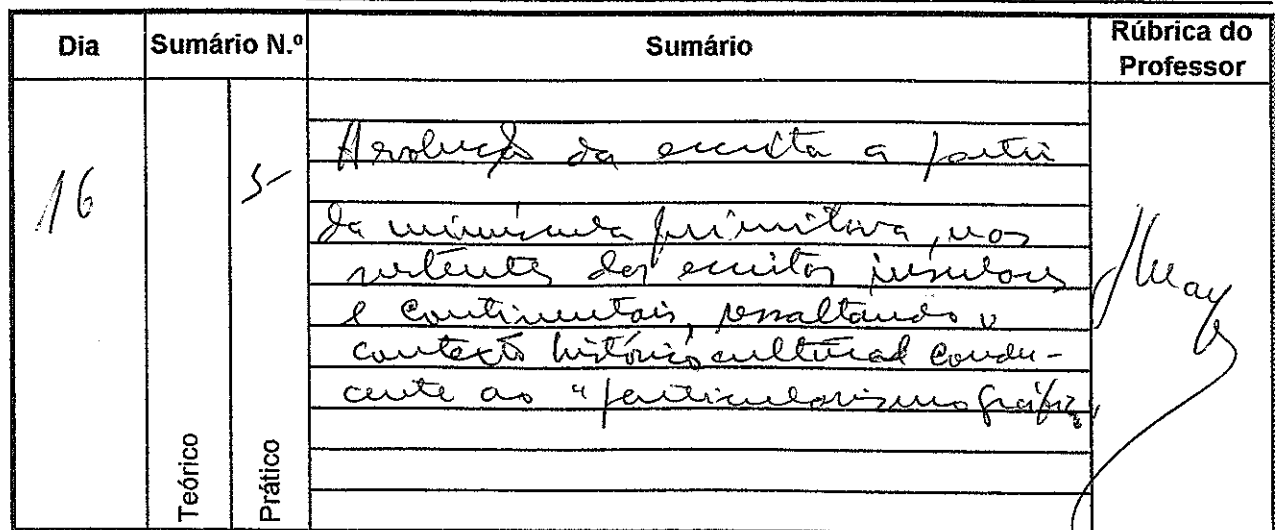 Dia Sumário N.º Sumário Rúbrica do Professor
16 5
A evolução da escrita a partir
da minúscula primitiva, nas
vertentes das escritas insulares
e continentais, ressaltando o
contexto histórico cultural condu-
cente ao "particularismo gráfico"
Teórico Prático